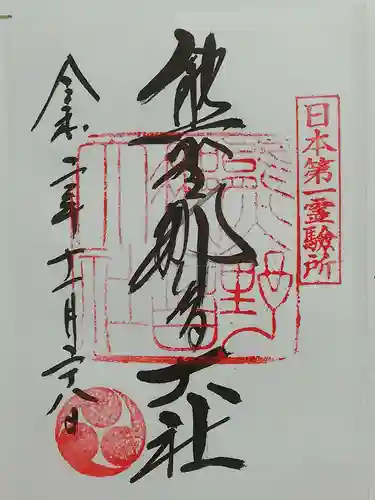 日本第一霊験所
熊野那智大社
令和二年十一月二十八日